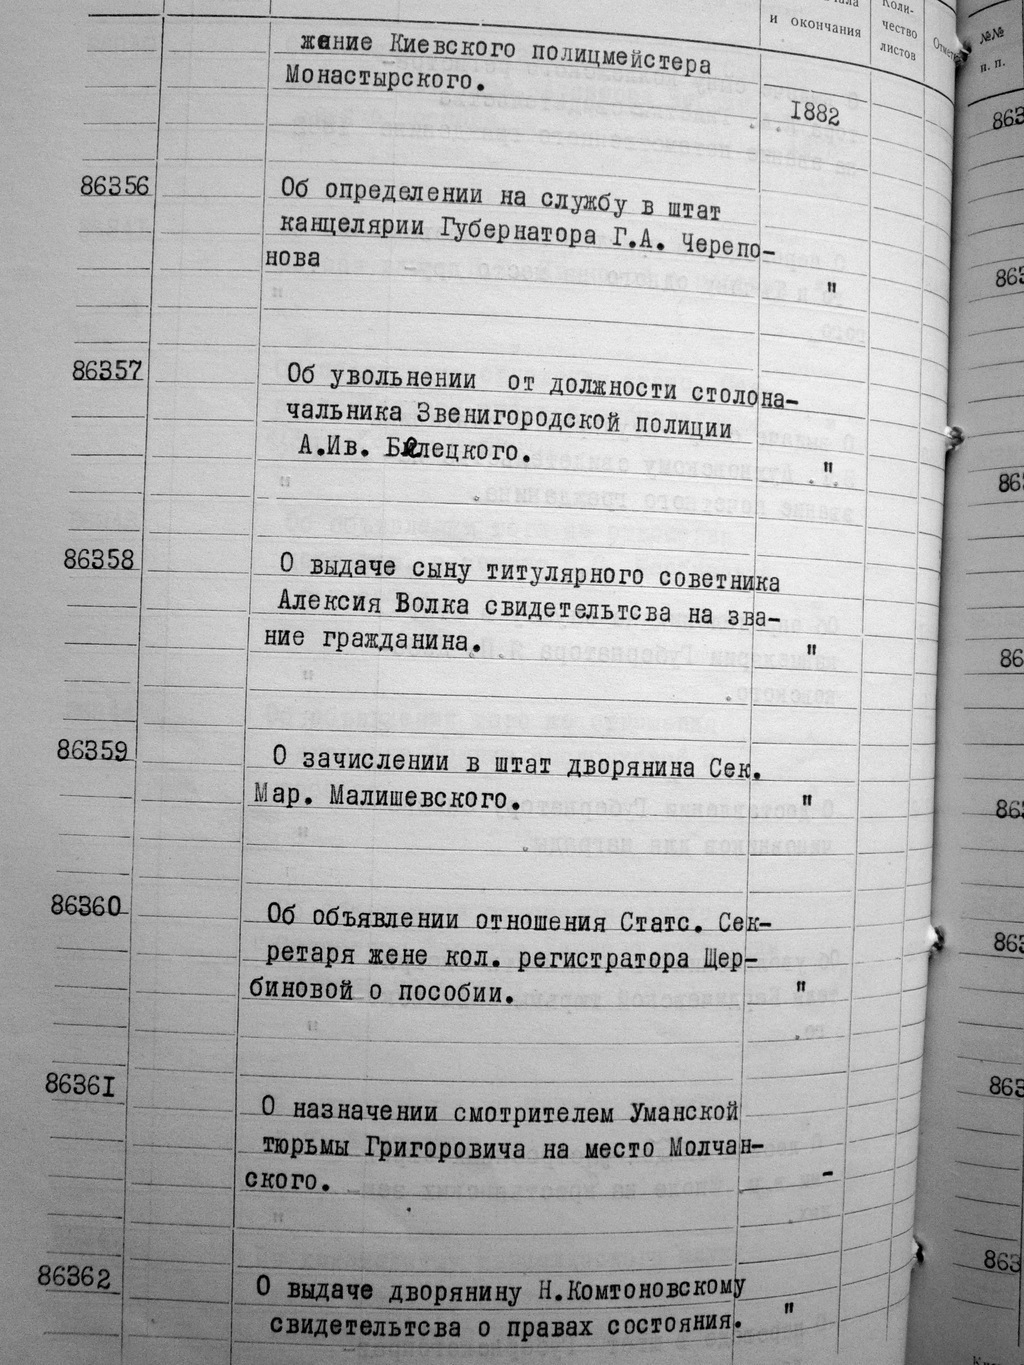 и окончания
чество
листов
№№
п. п.
жение Киевского полицмейстера
Монастырского.
1882
86356
Об определении на службу в штат
канцелярии Губернатора Г.А. Черепо-
нова
"
86357
Об увольнении от должности столона-
чальника Звенигородской полиции
А.Ив. Белецкого.
"
86358
О выдаче сыну титулярного советника
Алексия Волка свидетельтсва на зва-
ние гражданина.
"
86359
О зачислении в штат дворянина Сек.
Мар. Малишевского.
"
86360
Об объявлении отношения Статс. Сек-
ретаря жене кол. регистратора Щер-
биновой о пособии.
"
86361
О назначении смотрителем Уманской
тюрьмы Григоровича на место Молчан-
ского.
-
86362
О выдаче дворянину Н.Комтоновскому
свидетельтсва о правах состояния.
"